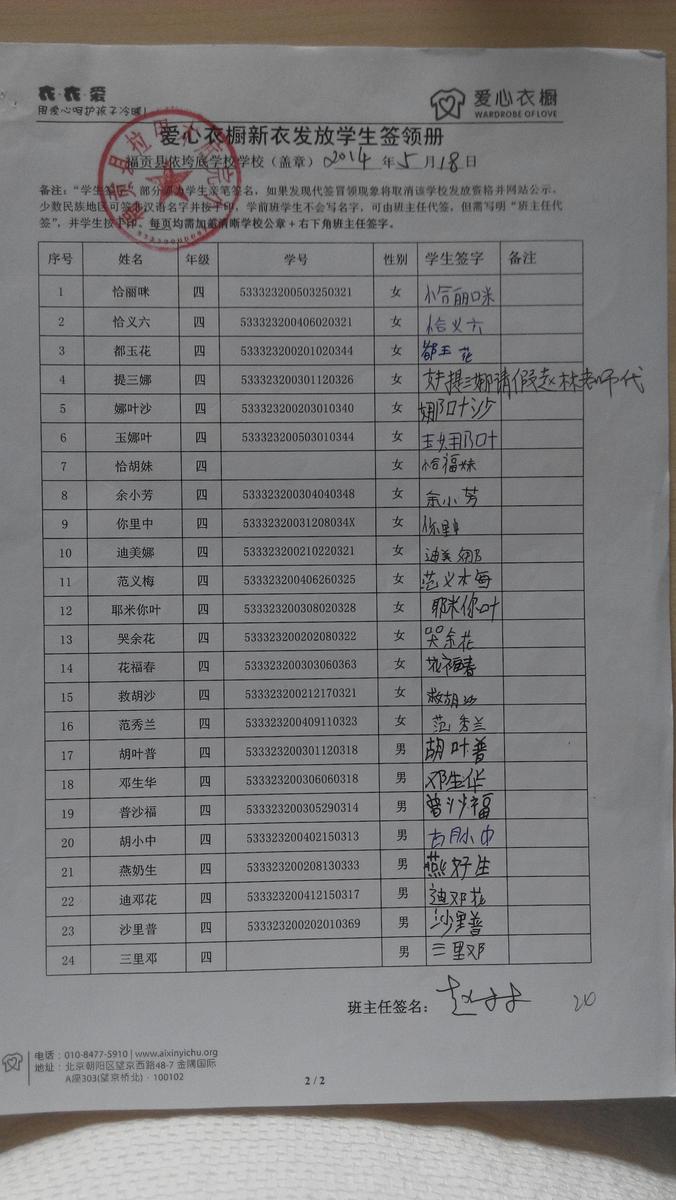 衣·衣·爱
用爱心呵护孩子冷暖!
爱心衣橱
WARDROBE OF LOVE
爱心衣橱新衣发放学生签领册
福贡县依垮底学校学校（盖章）2014年5月18日
备注："学生签字"部分需为学生亲笔签名，如果发现代签冒领现象将取消该学校发放资格并网站公示。
少数民族地区可签非汉语名字并按手印，学前班学生不会写名字，可由班主任代签，但需写明"班主任代
签"，并学生按手印。每页均需加盖清晰学校公章+右下角班主任签字。
序号 姓名 年级 学号 性别 学生签字 备注
1 恰丽咪 四 533323200503250321 女 恰丽咪
2 恰义六 四 533323200406020321 女 恰义六
3 都玉花 四 533323200201020344 女 都玉花
4 提三娜 四 533323200301120326 女 提三娜请假赵林老师代
5 娜叶沙 四 533323200203010340 女 娜叶沙
6 玉娜叶 四 533323200503010344 女 玉娜叶
7 恰胡妹 四 女 恰福妹
8 余小芳 四 533323200304040348 女 余小芳
9 你里中 四 53332320031208034X 女 你里中
10 迪美娜 四 533323200210220321 女 迪美娜
11 范义梅 四 533323200406260325 女 范义梅
12 耶米你叶 四 533323200308020328 女 耶米你叶
13 哭余花 四 533323200202080322 女 哭余花
14 花福春 四 533323200303060363 女 花福春
15 救胡沙 四 533323200212170321 女 救胡沙
16 范秀兰 四 533323200409110323 女 范秀兰
17 胡叶普 四 533323200301120318 男 胡叶普
18 邓生华 四 533323200306060318 男 邓生华
19 普沙福 四 533323200305290314 男 普沙福
20 胡小中 四 533323200402150313 男 胡小中
21 燕奶生 四 533323200208130333 男 燕奶生
22 迪邓花 四 533323200412150317 男 迪邓花
23 沙里普 四 533323200202010369 男 沙里普
24 三里邓 四 男 三里邓
班主任签名：赵林 20
电话：010-8477-5910 | www.aixinyichu.org
地址：北京朝阳区望京西路48-7 金隅国际
A座303(望京桥北)·100102
2 / 2